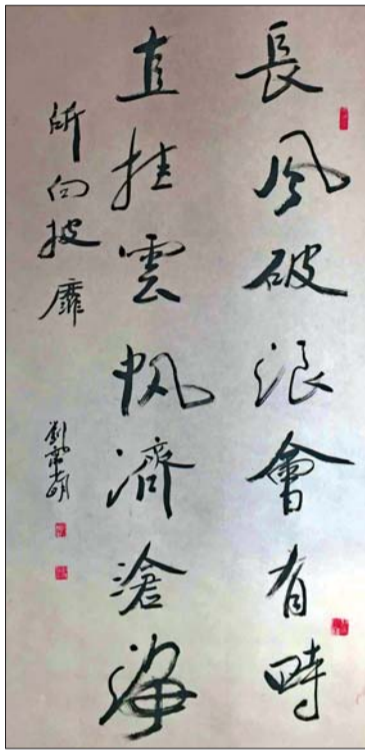 長風破浪會有時
直挂雲帆濟滄海
所向披靡